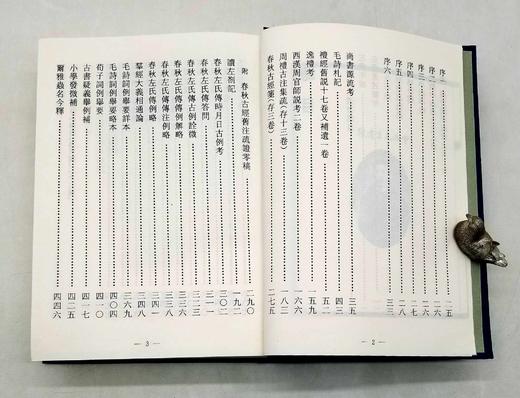 序二……二五
序三……二六
序四……二六
序五……二八
序六……三三
尚書源流考……三五
毛詩札記……四三
禮經舊說十七卷又補遺一卷……五二
逸禮考……一五九
西漢周官師說考二卷……一六六
周禮古注集疏(存十三卷)……一八三
春秋古經箋(存三卷)……二七五
— 2 —
附 春秋古經舊注疏證零稿……二九〇
讀左劄記……二九二
春秋左氏傳時月日古例考……三〇二
春秋左氏傳答問……三一三
春秋左氏傳古例詮微……三二三
春秋左氏傳例解略……三三三
春秋左氏傳傳注例略……三三八
春秋左氏傳例略……三四一
羣經大義相通論……三四八
毛詩詞例舉要詳本……三六九
毛詩詞例舉要略本……四〇四
荀子詞例舉要……四一〇
古書疑義舉例補……四一七
小學發微補……四二二
爾雅蟲名今釋……四四六
— 3 —